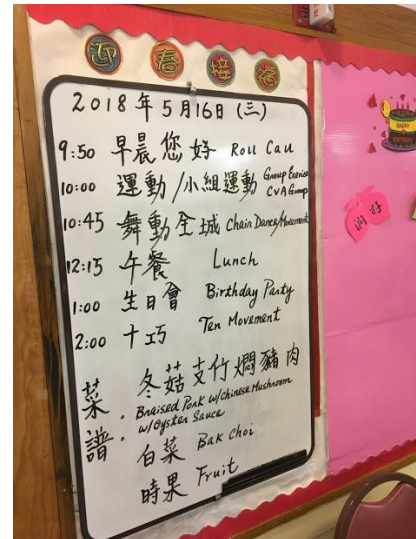 迎春接福
2018年5月16日(三)
9:50 早晨您好 Roll Call
10:00 運動/小組運動 Group Exercise
CVA Group
10:45 舞動全城 Chair Dance/Movement
12:15 午餐 Lunch
1:00 生日會 Birthday Party
2:00 十巧 Ten Movement
菜譜:
冬菇支竹燜豬肉
Braised Pork w/Chinese Mushroom
w/Oyster Sauce
白菜 Bak Choi
時果 Fruit
HAPPY
你好